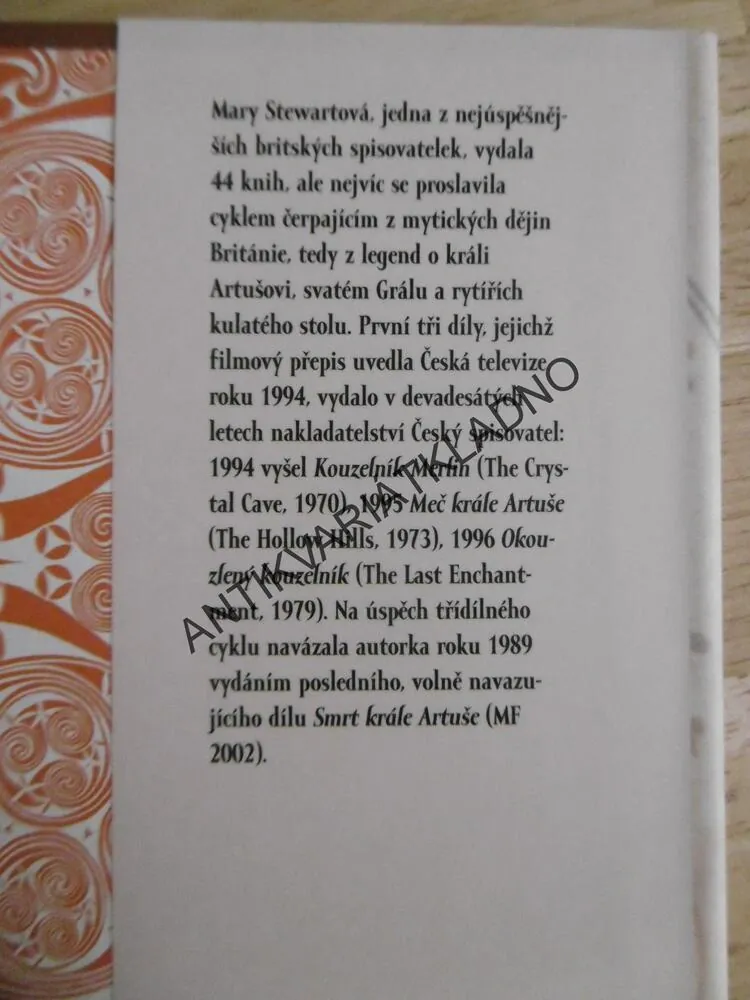 Mary Stewartová, jedna z nejúspěšněj-
ších britských spisovatelek, vydala
44 knih, ale nejvíc se proslavila
cyklem čerpajícím z mytických dějin
Británie, tedy z legend o králi
Artušovi, svatém Grálu a rytířích
kulatého stolu. První tři díly, jejichž
filmový přepis uvedla Česká televize
roku 1994, vydalo v devadesátých
letech nakladatelství Český spisovatel:
1994 vyšel Kouzelník Merlin (The Crys-
tal Cave, 1970), 1995 Meč krále Artuše
(The Hollow Hills, 1973), 1996 Okou-
zlený kouzelník (The Last Enchant-
ment, 1979). Na úspěch třídílného
cyklu navázala autorka roku 1989
vydáním posledního, volně navazu-
jícího dílu Smrt krále Artuše (MF
2002).
ANTIKVARIATKLADNO